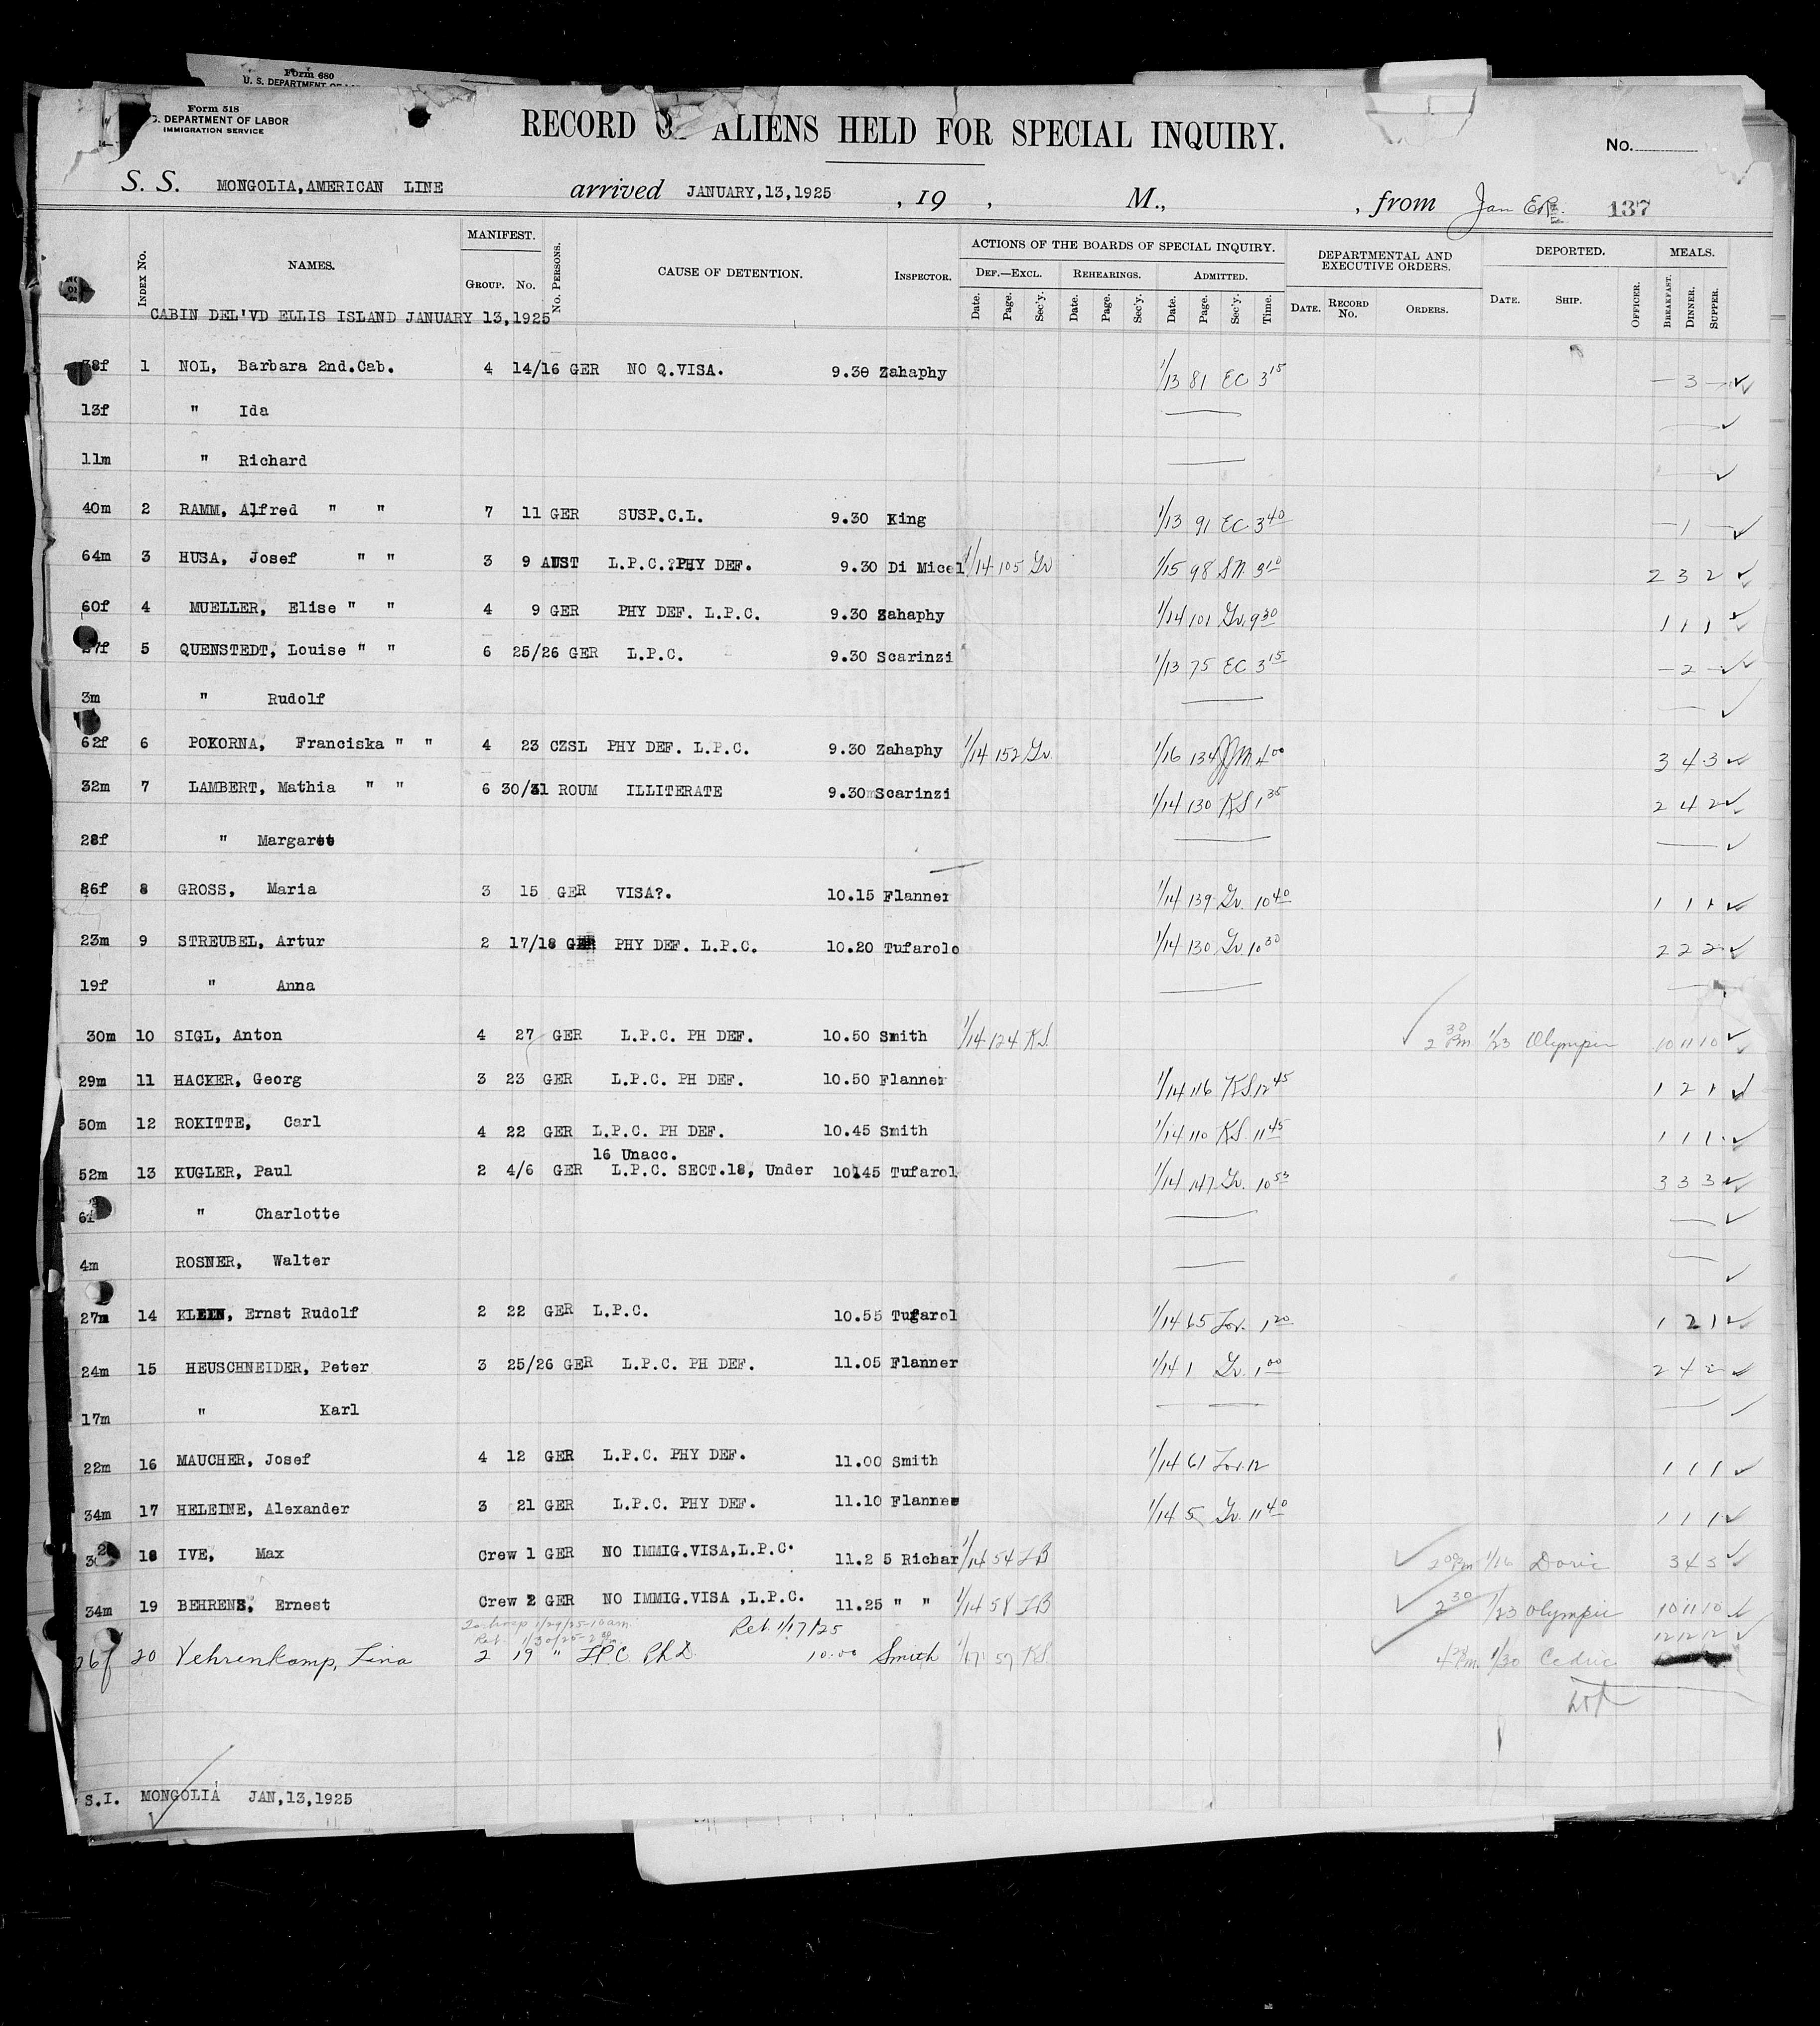 Form 680
U. S. DEPARTMENT OF
Form 518
DEPARTMENT OF LABOR
IMMIGRATION SERVICE
RECORD ALIENS HELD FOR SPECIAL INQUIRY.
No.
S. S. MONGOLIA, AMERICAN LINE arrived JANUARY,13,1925 , 19 , M., , from Jan 137
INDEX No. NAMES. MANIFEST. GROUP. No. No. PERSONS. CAUSE OF DETENTION. INSPECTOR. ACTIONS OF THE BOARDS OF SPECIAL INQUIRY. DEPARTMENTAL AND EXECUTIVE ORDERS. DEPORTED. MEALS.
DEF.—EXCL. REHEARINGS. ADMITTED.
Date. Page. Sec'y. Date. Page. Sec'y. Date. Page. Sec'y. Time. DATE. RECORD No. ORDERS. DATE. SHIP. OFFICER. BREAKFAST. DINNER. SUPPER.
CABIN DEL'VD ELLIS ISLAND JANUARY 13,1925
38f 1 NOL, Barbara 2nd.Cab. 4 14/16 GER NO Q.VISA. 9.30 Zahaphy 1/13 81 EC 3 15 — 3 —
13f " Ida
11m " Richard
40m 2 RAMM, Alfred " " 7 11 GER SUSP.C.L. 9.30 King 1/13 91 EC 3 40 — 1 —
64m 3 HUSA, Josef " " 3 9 AUST L.P.C.?PHY DEF. 9.30 Di Micel 1/14 105 Gr 1/15 98 SN 3 10 2 3 2
60f 4 MUELLER, Elise " " 4 9 GER PHY DEF. L.P.C. 9.30 Zahaphy 1/14 101 Gr. 9 30 1 1 1
27f 5 QUENSTEDT, Louise " " 6 25/26 GER L.P.C. 9.30 Scarinzi 1/13 75 EC 3 15 — 2 —
3m " Rudolf
62f 6 POKORNA, Franciska " " 4 23 CZSL PHY DEF. L.P.C. 9.30 Zahaphy 1/14 152 Gr. 1/16 134 4 00 3 4 3
32m 7 LAMBERT, Mathia " " 6 30/31 ROUM ILLITERATE 9.30 Scarinzi 1/14 130 KS 1 35 2 4 2
28f " Margaret
26f 8 GROSS, Maria 3 15 GER VISA?. 10.15 Flanner 1/14 139 Gr. 10 40 1 1 1
23m 9 STREUBEL, Artur 2 17/18 GER PHY DEF. L.P.C. 10.20 Tufarolo 1/14 130 Gr 10 30 2 2 2
19f " Anna
30m 10 SIGL, Anton 4 27 GER L.P.C. PH DEF. 10.50 Smith 1/14 124 KS. 2 30 Pm 1/23 Olympic 10 11 10
29m 11 HACKER, Georg 3 23 GER L.P.C. PH DEF. 10.50 Flanner 1/14 116 KS. 12 45 1 2 1
50m 12 ROKITTE, Carl 4 22 GER L.P.C. PH DEF. 10.45 Smith 1/14 110 KS. 11 45 1 1 1
16 Unacc.
52m 13 KUGLER, Paul 2 4/6 GER L.P.C. SECT.18, Under 10.45 Tufarol 1/14 147 Gr. 10 53 3 3 3
6f " Charlotte
4m ROSNER, Walter
27m 14 KLEIN, Ernst Rudolf 2 22 GER L.P.C. 10.55 Tufarol 1/14 65 1 20 1 2 1
24m 15 HEUSCHNEIDER, Peter 3 25/26 GER L.P.C. PH DEF. 11.05 Flanner 1/14 1 Gr. 1 00 2 4 2
17m " Karl
22m 16 MAUCHER, Josef 4 12 GER L.P.C. PHY DEF. 11.00 Smith 1/14 61 12 1 1 1
34m 17 HELEINE, Alexander 3 21 GER L.P.C. PHY DEF. 11.10 Flanner 1/14 5 Gr. 11 40 1 1 1
18 IVE, Max Crew 1 GER NO IMMIG.VISA,L.P.C. 11.2 5 Richar 1/14 54 LB 2 00 Pm 1/16 Doric 3 4 3
34m 19 BEHRENS, Ernest Crew 2 GER NO IMMIG.VISA ,L.P.C. 11.25 " " 1/14 58 LB 2 30 1/23 Olympic 10 11 10
To hosp 1/29/25-10am
Ret. 1/30/25-2 Ret. 1/17/25 12 12 12
26f 20 Vehrenkamp, Lina 2 19 " LPC Ph D. 10.00 Smith 1/17 57 KS. 4 Pm. 1/30 Cedric
S.I. MONGOLIA JAN,13,1925